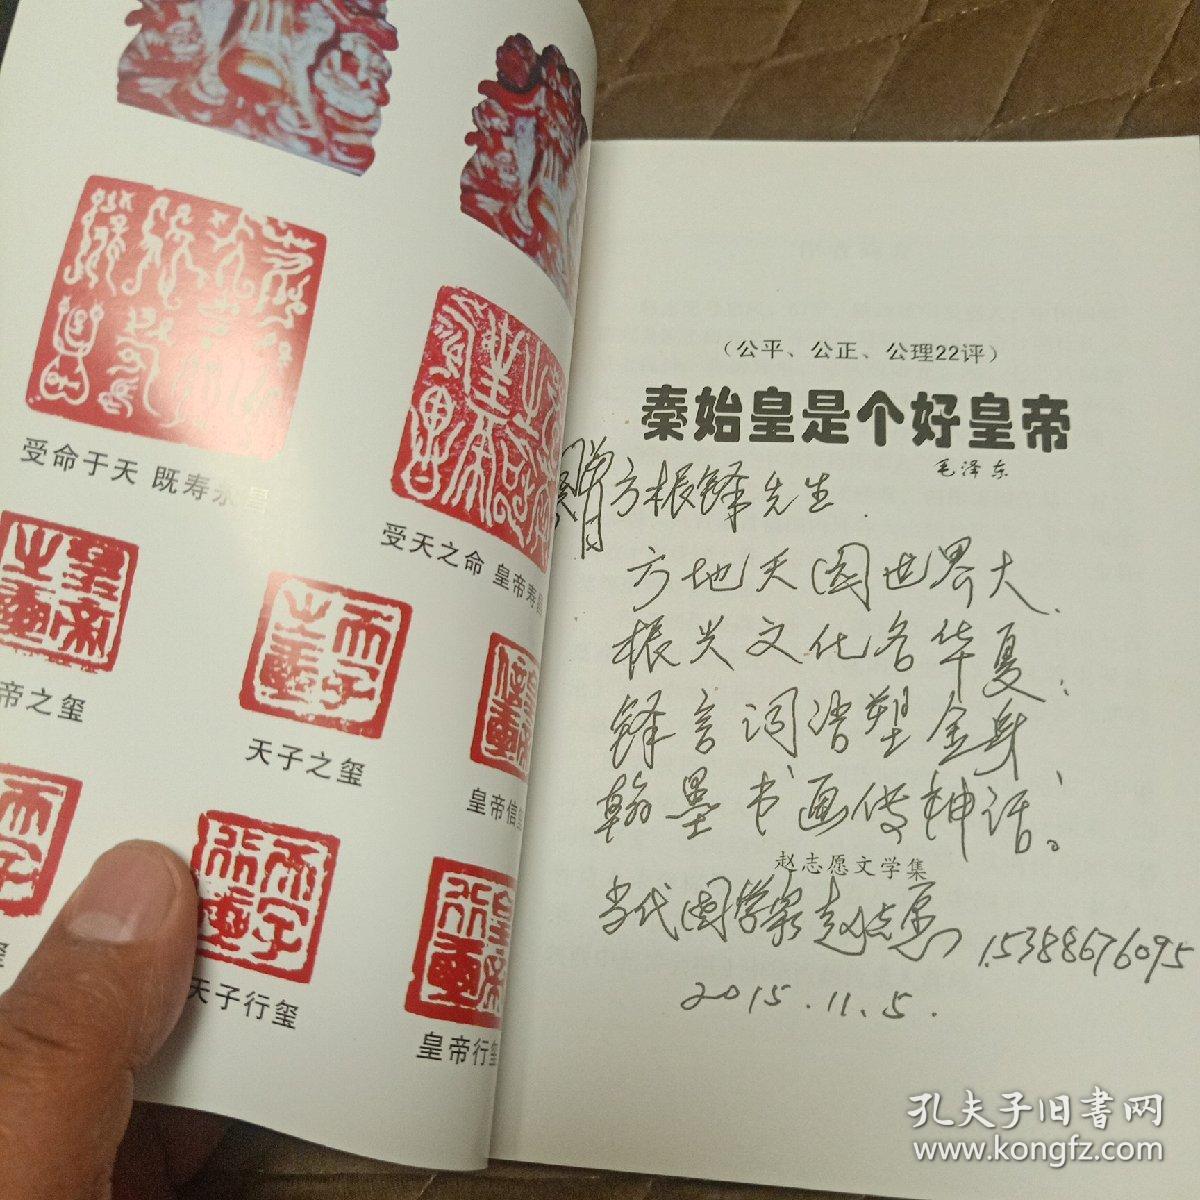 受命于天 既寿永昌
受天之命 皇帝寿
帝之玺
天子之玺
皇帝信
天子行玺
皇帝行玺
（公平、公正、公理22评）
秦始皇是个好皇帝
毛泽东
赠方振铎先生
方地天圆世界大
振兴文化名华夏
铎言词谱塑金身
翰墨书画传神话。
赵志愿文学集
当代国学家赵志愿 15388676095
2015.11.5.
孔夫子旧书网
www.kongfz.com